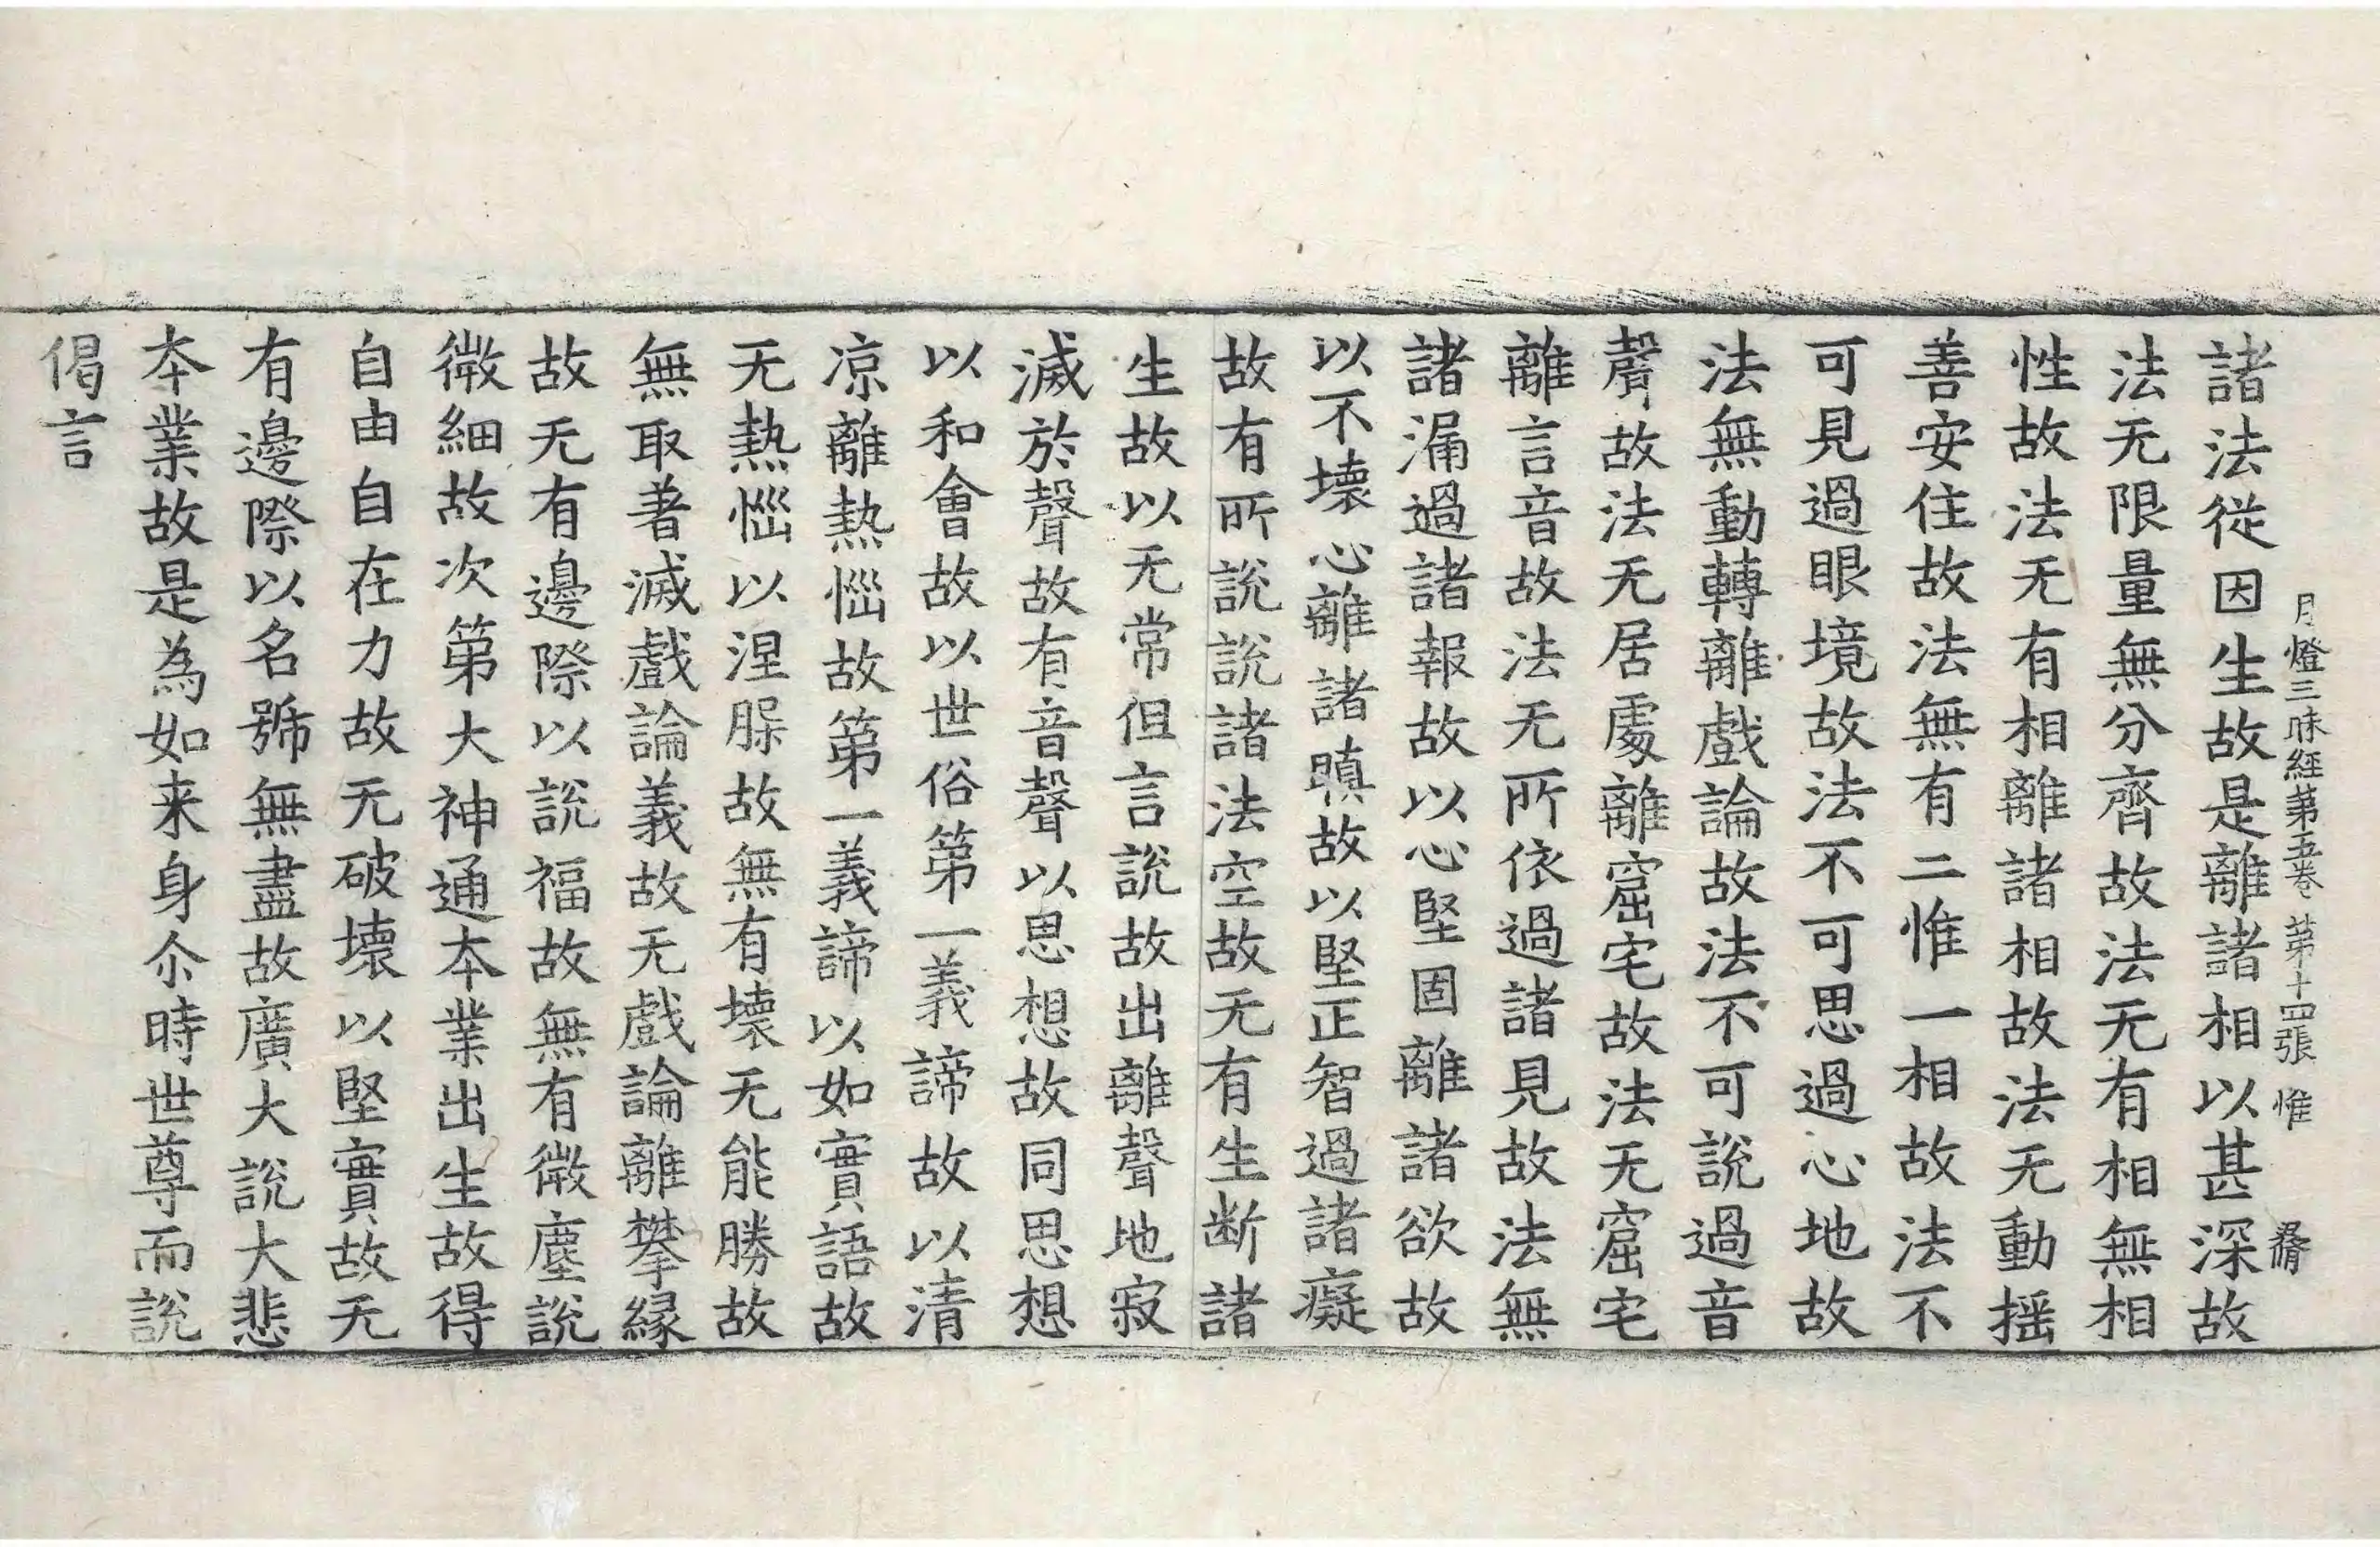 月燈三昧經第五卷 第十四張 惟
諸法從因生故是離諸相以甚深故
法无限量無分齊故法无有相無相
性故法无有相離諸相故法无動揺
善安住故法無有二惟一相故法不
可見過眼境故法不可思過心地故
法無動轉離戲論故法不可說過音
聲故法无居處離窟宅故法无窟宅
離言音故法无所依過諸見故法無
諸漏過諸報故以心堅固離諸欲故
以不壞心離諸瞋故以堅正智過諸癡
故有所說說諸法空故无有生断諸
生故以无常但言說故出離聲地寂
滅於聲故有音聲以思想故同思想
以和會故以世俗第一義諦故以清
凉離熱惱故第一義諦以如實語故
无熱惱以涅槃故無有壞无能勝故
無取著滅戲論義故无戲論離攀縁
故无有邊際以說福故無有微塵說
微細故次第大神通本業出生故得
自由自在力故无破壞以堅實故无
有邊際以名號無盡故廣大說大悲
本業故是為如来身尒時世尊而說
偈言